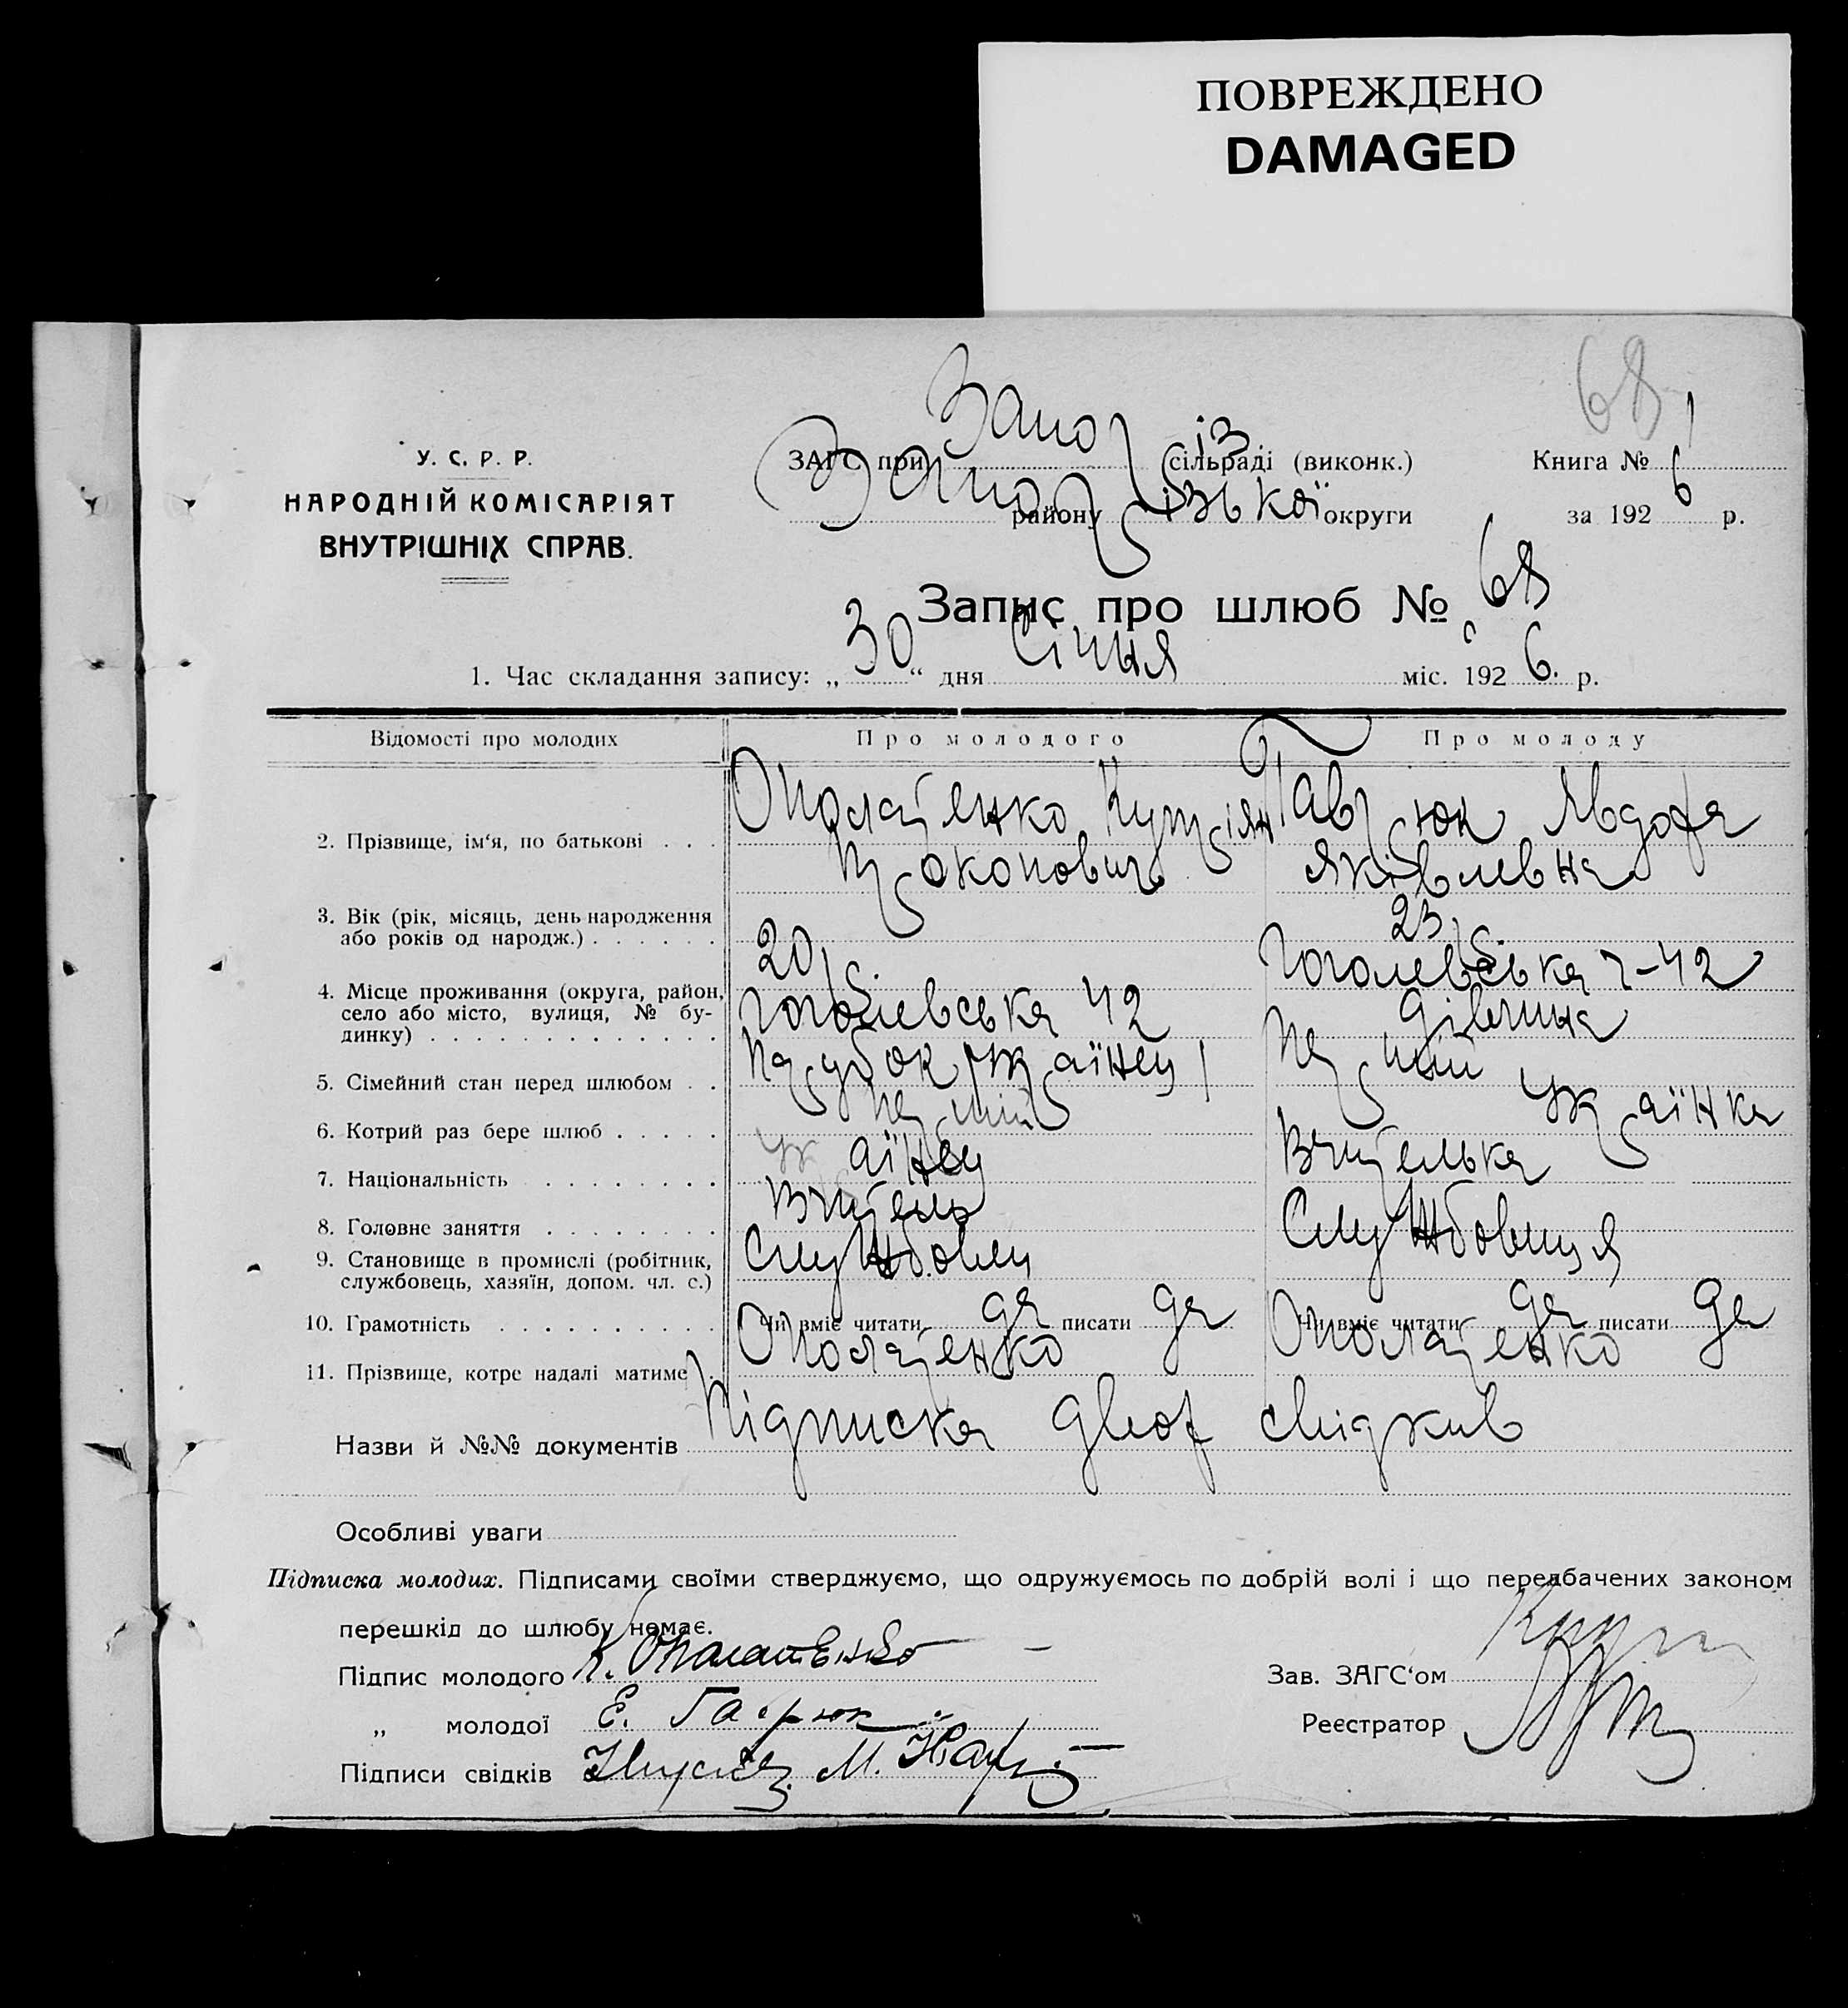 ПОВРЕЖДЕНО
DAMAGED
68
У. С. Р. Р.
НАРОДНІЙ КОМІСАРІЯТ
ВНУТРІШНІХ СПРАВ.
ЗАГС при Запоріз сільраді (виконк.)
Запорізької району округи
Книга № 1
за 1926 р.
Запис про шлюб № 68
1. Час складання запису: „30“ дня Січня міс. 1926. р.
Відомості про молодих Про молодого Про молоду
2. Прізвище, ім‘я, по батькові . . . Ополатенко Купріян Гаврюк Явдоха
Прокопович Яківлевна
3. Вік (рік, місяць, день народження
або років од народж.) . . . . . . 20 р. 23 р.
4. Місце проживання (округа, район,
село або місто, вулиця, № бу-
динку) . . . . . . . . . . . . . Гоголевська 42 Гоголевська 42
5. Сімейний стан перед шлюбом . . Парубок Дівчина
6. Котрий раз бере шлюб . . . . . перший перший
7. Національність . . . . . . . . українец українка
8. Головне заняття . . . . . . . . Вчитель Вчителька
9. Становище в промислі (робітник,
службовець, хазяїн, допом. чл. с.) Службовец Службовиця
10. Грамотність . . . . . . . . . . Чи вміє читати да писати да Чи вміє читати да писати да
11. Прізвище, котре надалі матиме Ополатенко Ополатенко
Назви й №№ документів Підписка двох свідків
Особливі уваги
Підписка молодих. Підписами своїми стверджуємо, що одружуємось по добрій волі і що передбачених законом
перешкід до шлюбу немає.
Підпис молодого К. Ополатенко
„ молодої Е. Гаврюк
Підписи свідків
Зав. ЗАГС‘ом
Реєстратор